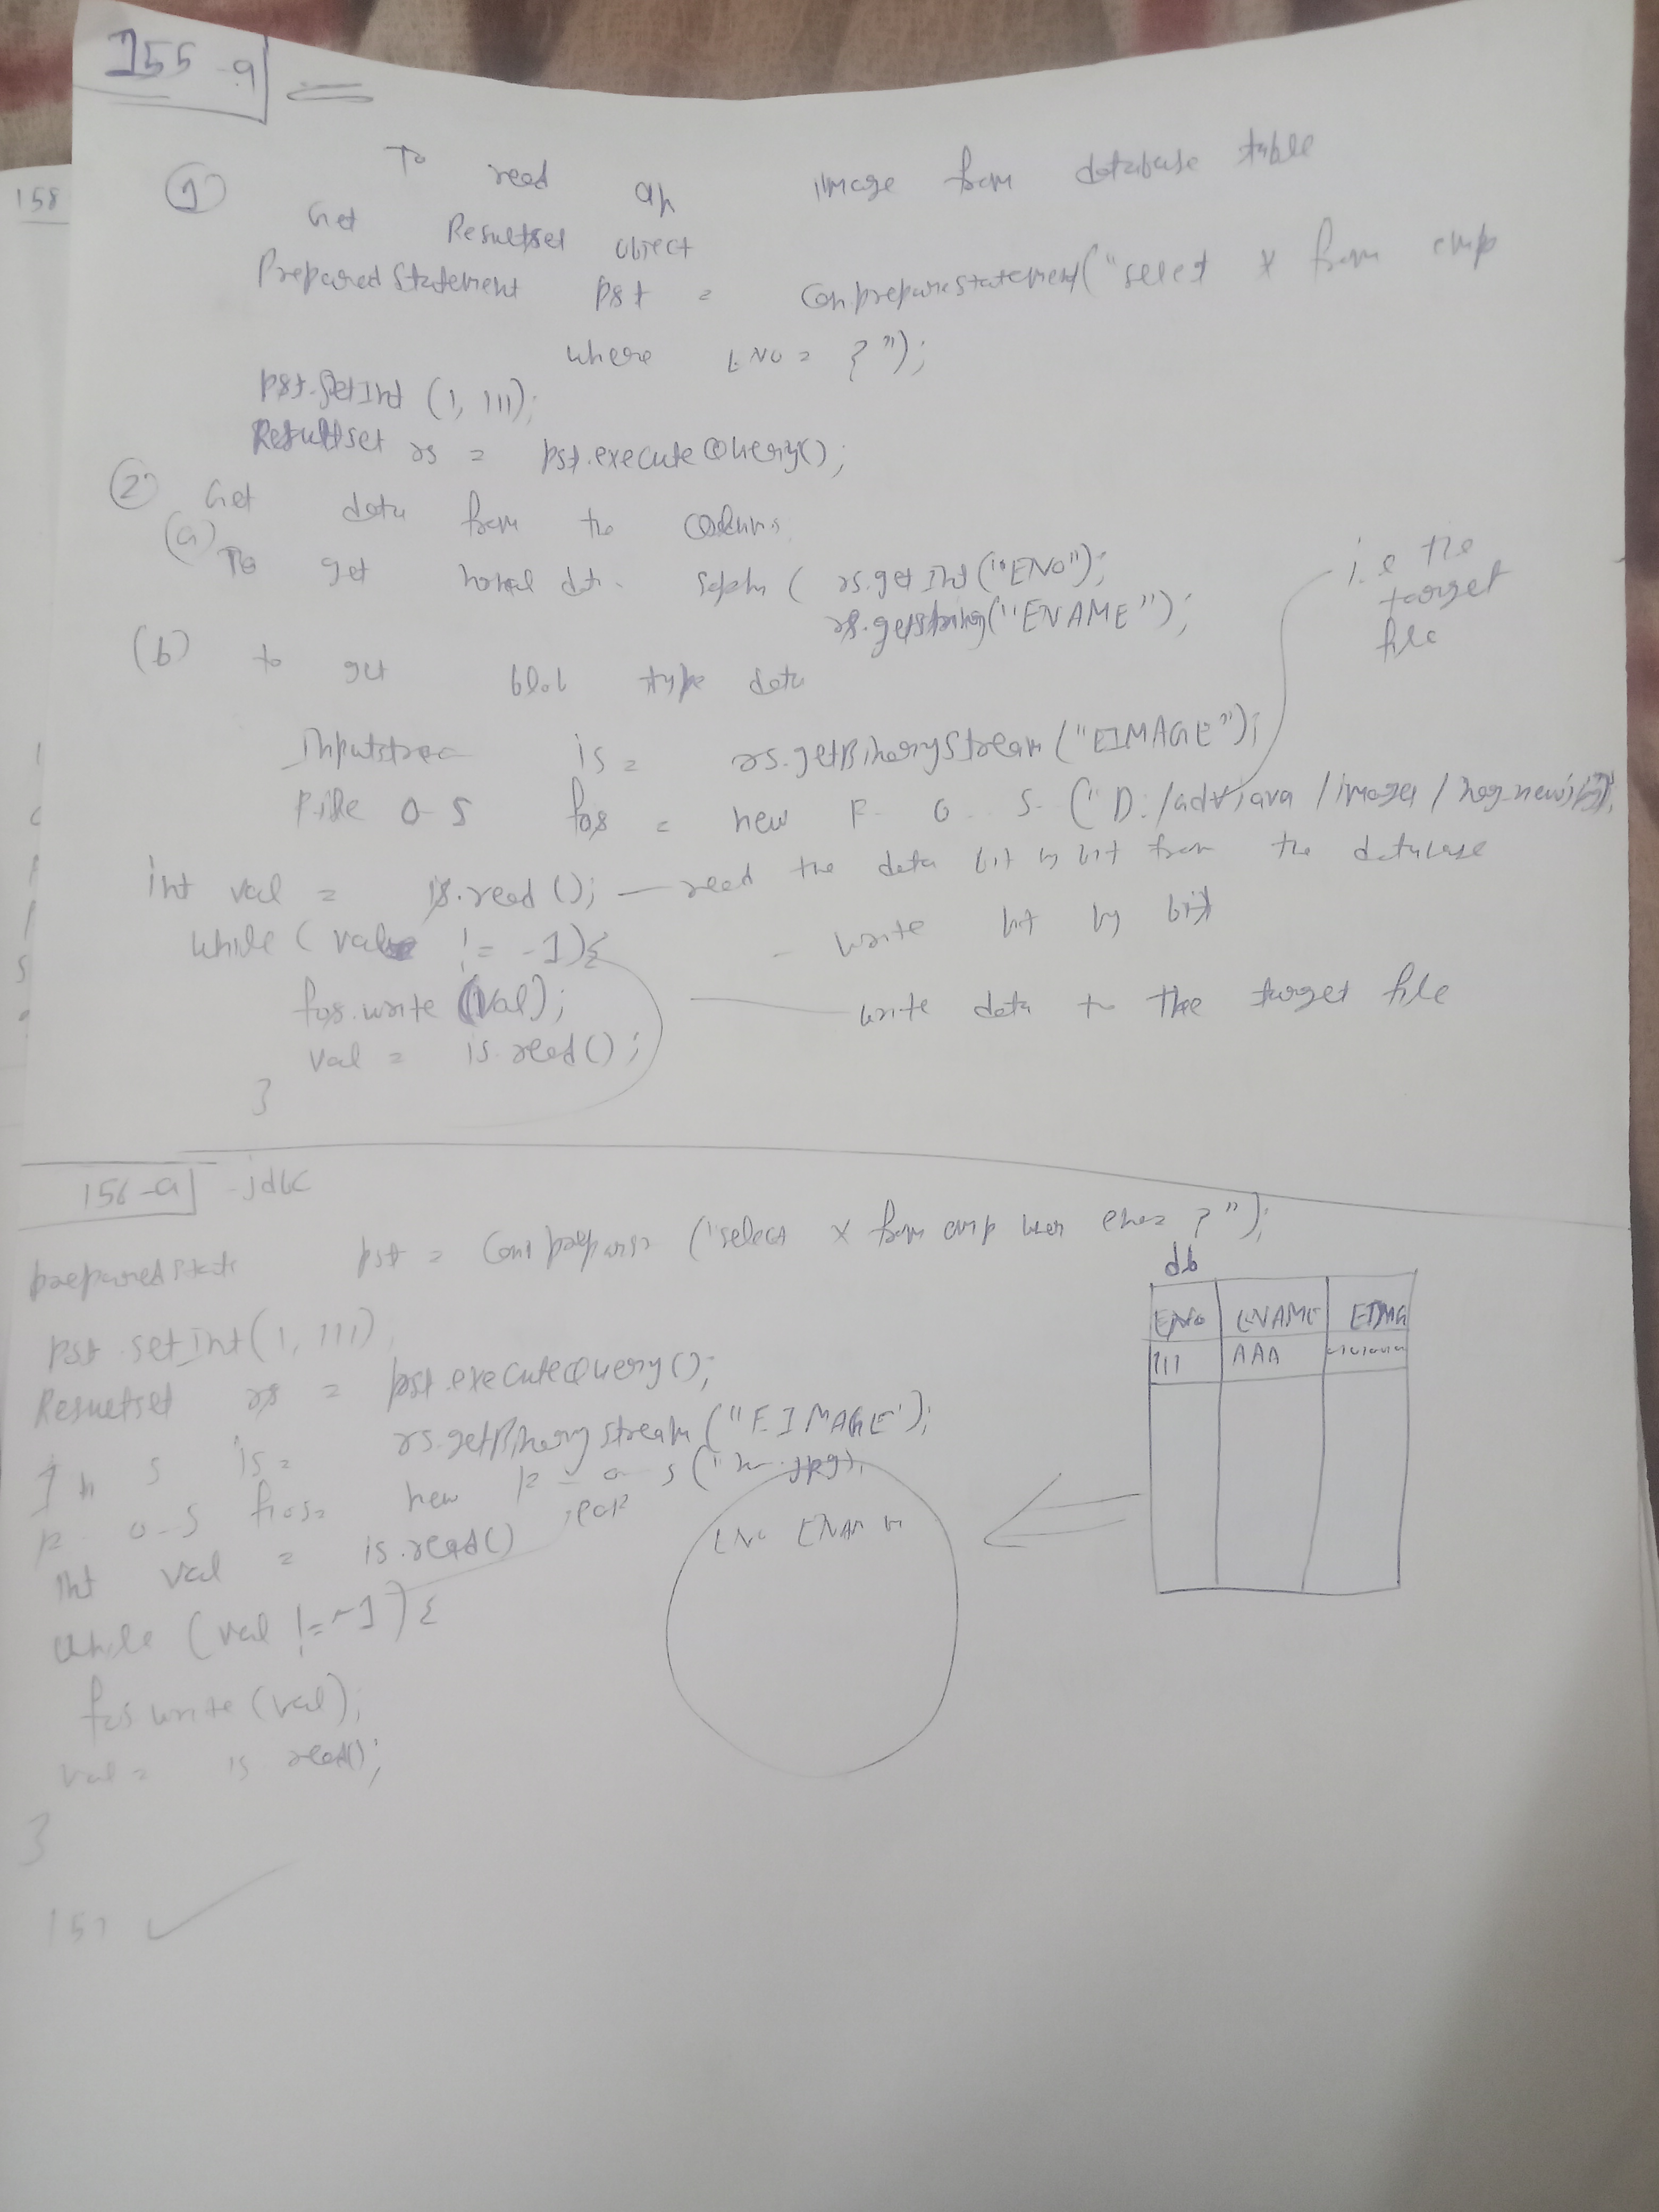 155-a
158
To read an image from database table
①
Get Resultset object
PreparedStatement pst = con.preparestatement("select * from emp
where ENO = ?");
pst.setInt (1, 111);
Resultset rs = pst.executeQuery();
② Get data from the columns
(a) To get normal dt. sopln ( rs.getInt("ENO");
rs.getString("ENAME");
i.e the
target
file
(b) to get blob type data
Inputstrea is = rs.getBinaryStream("EIMAGE");
File O-S fos = new F. O. S. ("D:/advjava/images/
int val = is.read(); — read the data bit by bit from the database
while (val != -1){ - write bit by bit
fos.write (val); write data to the target file
val = is.read();
}
156-a -jdbc
preparedstate pst = con. ("select * from emp eno= ?");
db
ENO ENAME EIMG
111 AAA
pst.setInt(1, 111)
Resultset rs = pst.executeQuery();
In S is = rs.getBinarystream("EIMAGE");
F. O-S fos= new F - O S (" .jpg);
int val = is.read()
ENO ENAM
while (val != -1) {
fos write (val);
val = is read();
}
157